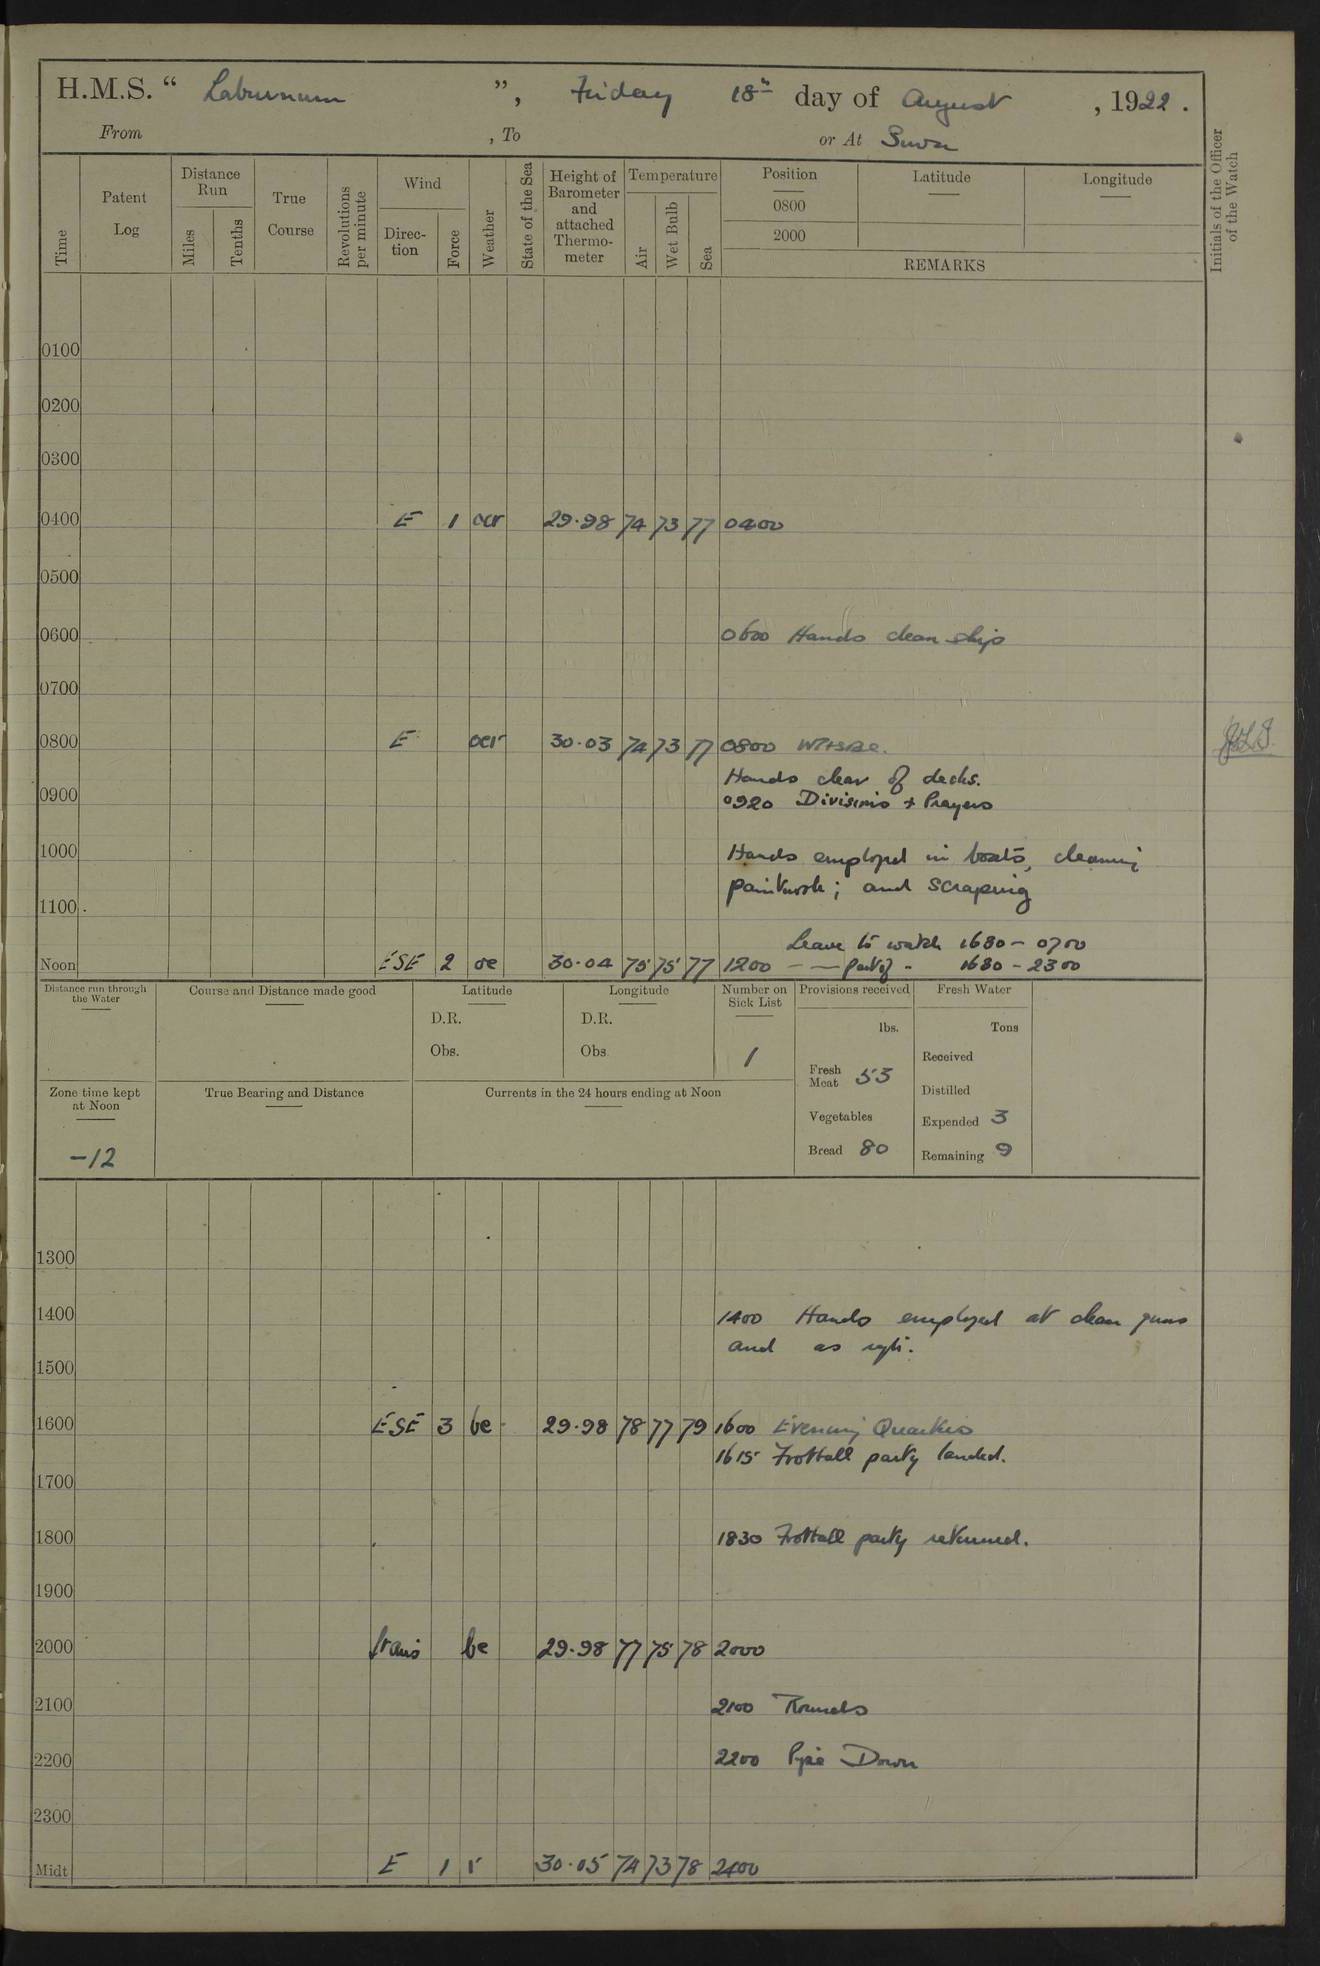 H.M.S. “ Laburnum ”, Friday 18th day of August , 1922 .
From , To or At Suva
Time
Patent Log
Distance Run
Miles
Tenths
True Course
Revolutions per minute
Wind
Direc-tion
Force
Weather
State of the Sea
Height of Barometer and attached Thermo-meter
Temperature
Air
Wet Bulb
Sea
Position
0800
2000
Latitude
Longitude
REMARKS
Initials of the Officer of the Watch
0100
0200
0300
0400 E 1 ocr 29.98 74 73 77 0400
0500
0600 0600 Hands clean ship
0700
0800 E ocr 30.03 74 73 77 0800
Hands clear of decks.
0900 0920 Divisions + Prayers
1000 Hands employed in boats, cleaning
paintwork; and scraping
1100
Leave to watch 1630 - 0700
Noon ESE 2 oc 30.04 75 75 77 1200 - — part of - 1630 - 2300
Distance run through the Water
Course and Distance made good
Latitude
D.R.
Obs.
Longitude
D.R.
Obs.
Number on Sick List
1
Provisions received
lbs.
Fresh Meat 53
Vegetables
Bread 80
Fresh Water
Tons
Received
Distilled
Expended 3
Remaining 9
Zone time kept at Noon
-12
True Bearing and Distance
Currents in the 24 hours ending at Noon
1300
1400 1400 Hands employed at clean guns
and as
1500
1600 ESE 3 bc 29.98 78 77 79 1600 Evening Quarters
1615 Football party landed.
1700
1800 1830 Football party returned.
1900
2000 bc 29.98 77 75 78 2000
2100 2100 Rounds
2200 2200 Pipe Down
2300
Midt E 1 r 30.05 74 73 78 2400